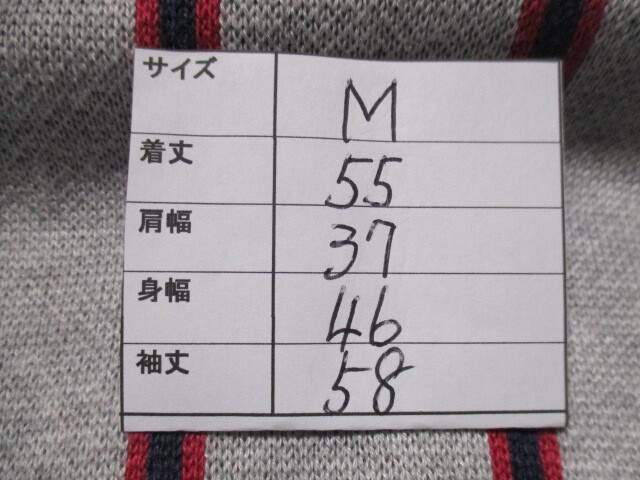 サイズ M
着丈 55
肩幅 37
身幅 46
袖丈 58